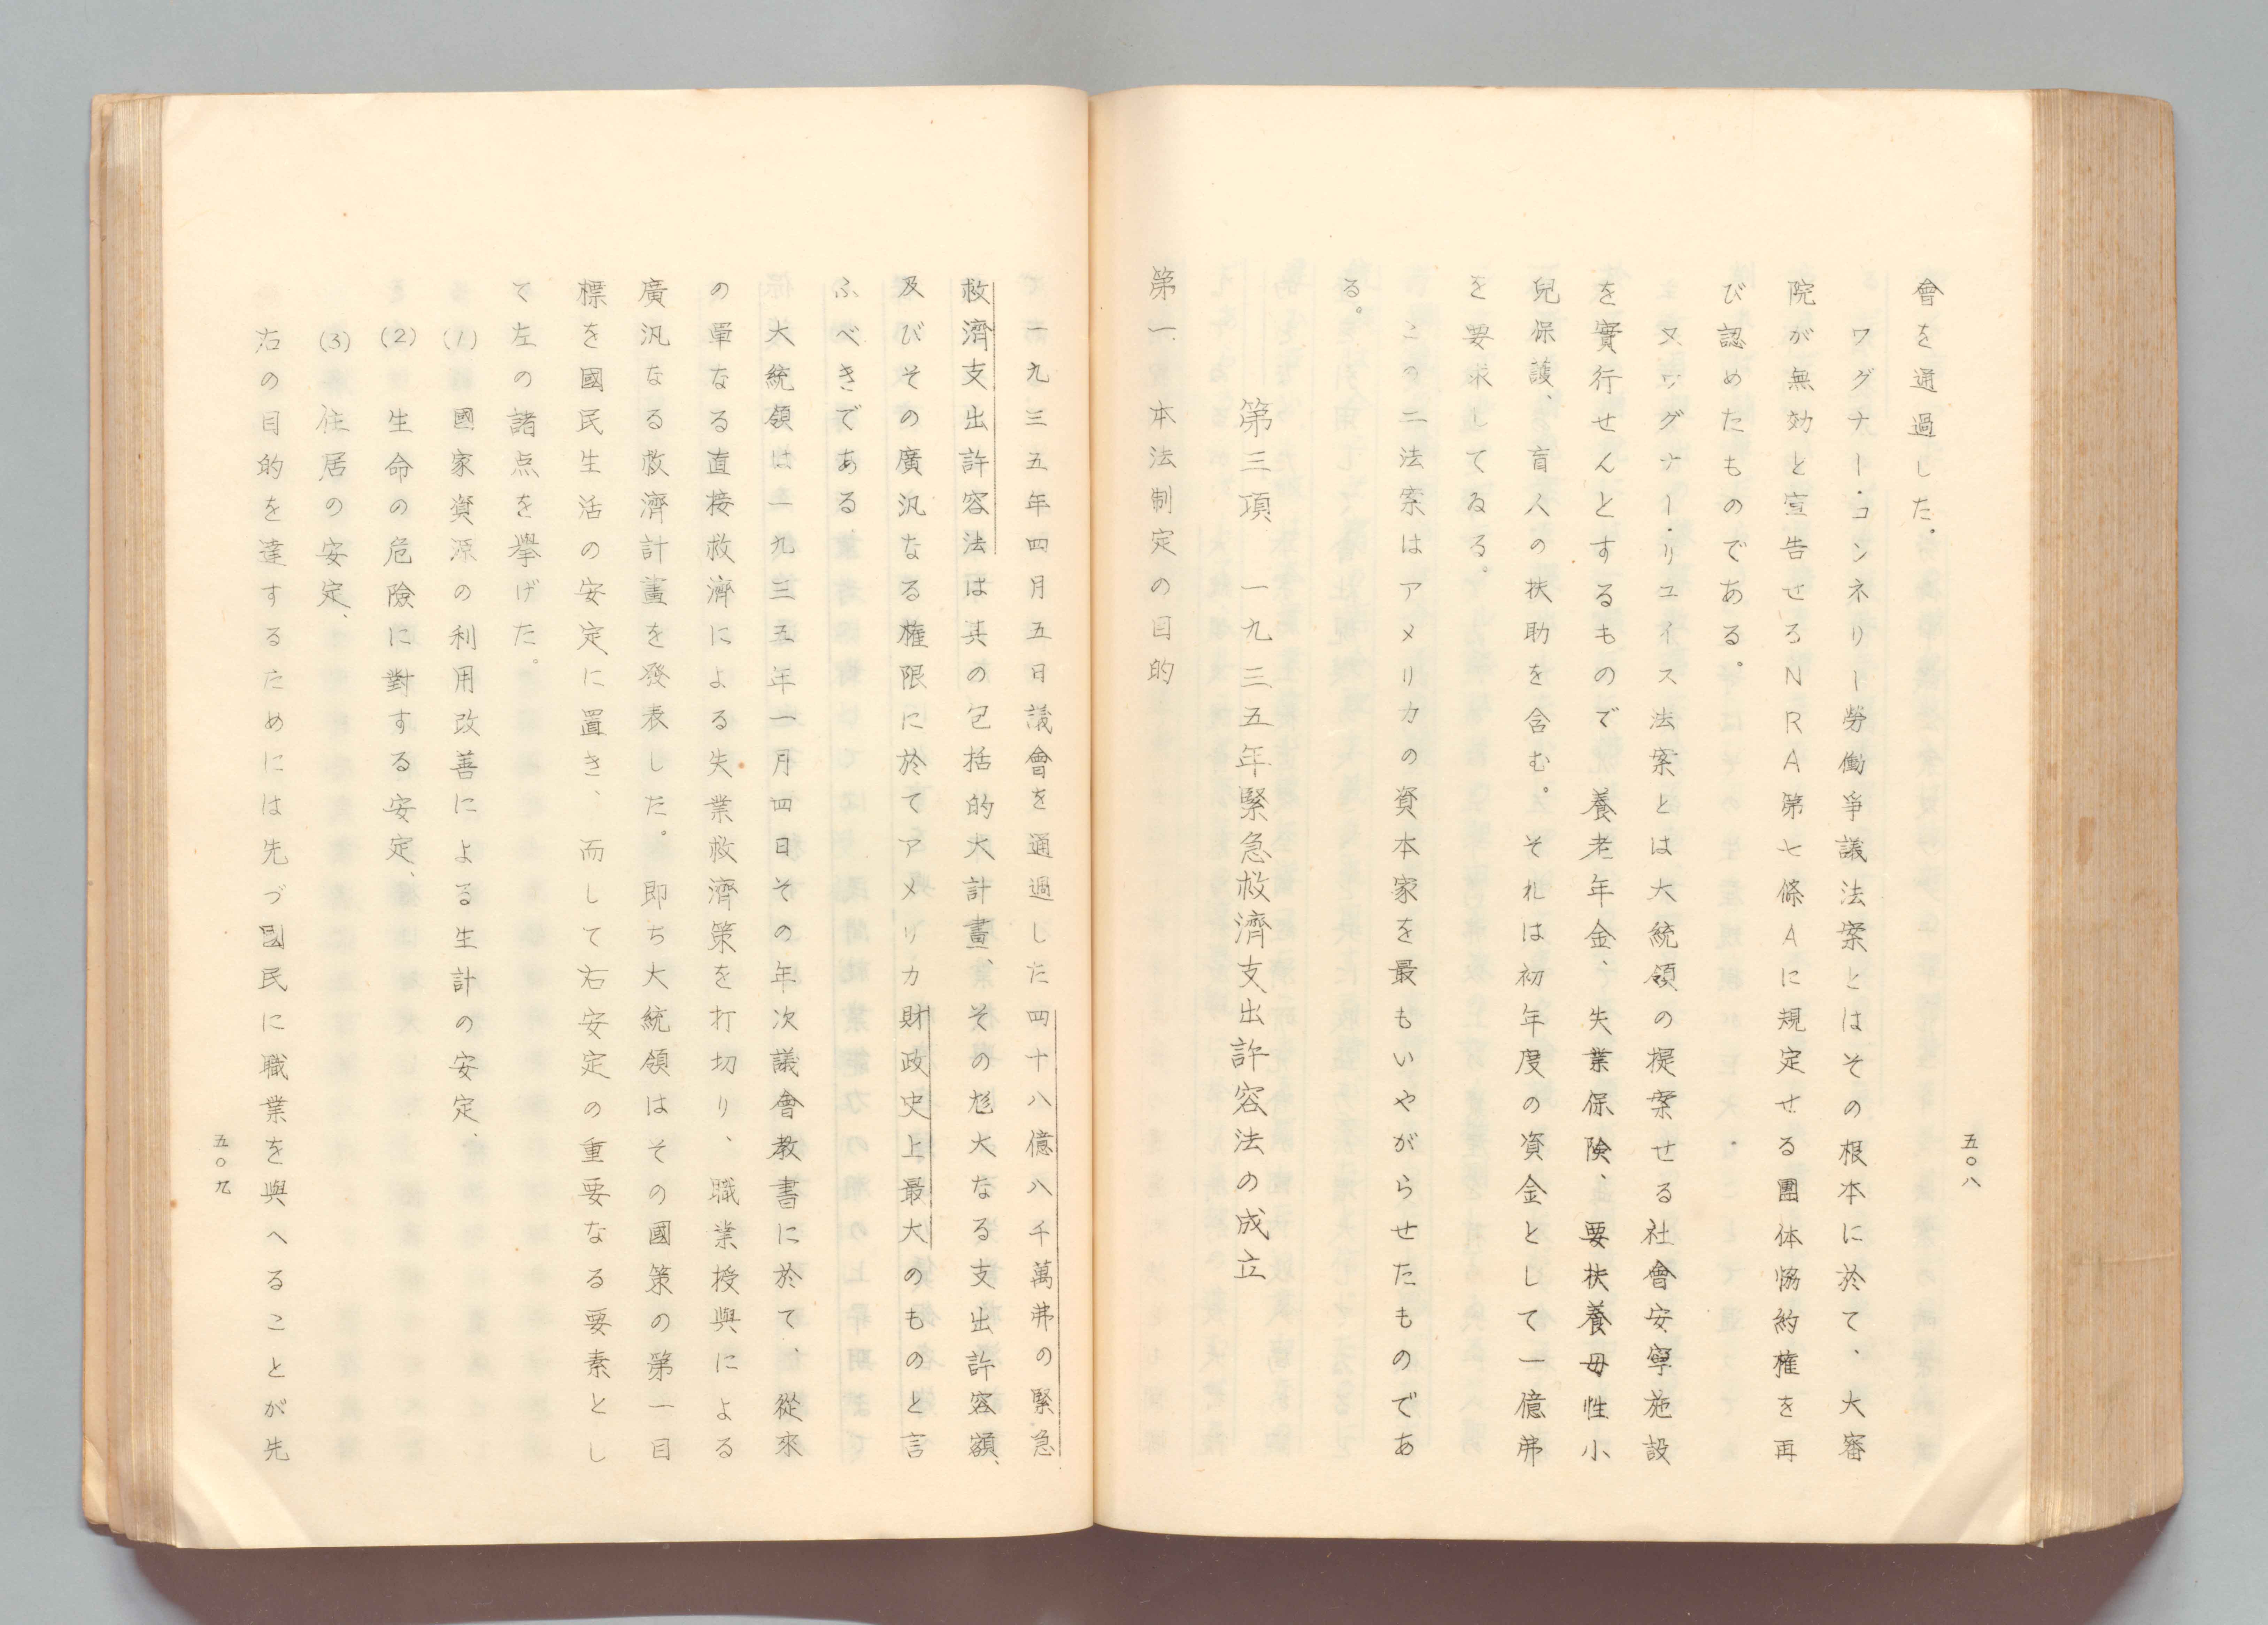 會を通過した。
ワグナー・コンネリー勞働爭議法案とはその根本に於て、大審
院が無効と宣告せるNRA第七條Aに規定せる團体協約権を再
び認めたものである。
又ワグナー・リユイス法案とは大統領の提案せる社會安寧施設
を實行せんとするもので養老年金、失業保険、要扶養母性小
兒保護、盲人の扶助を含む。それは初年度の資金として一億弗
を要求してゐる。
この二法案はアメリカの資本家を最もいやがらせたものであ
る。
第三項 一九三五年緊急救濟支出許容法の成立
第一、本法制定の目的
五〇八
一九三五年四月五日議會を通過した四十八億八千萬弗の緊急
救濟支出許容法は其の包括的大計畫、その尨大なる支出許容額、
及びその廣汎なる権限に於てアメリカ財政史上最大のものと言
ふべきである、
大統領は一九三五年一月四日その年次議會教書に於て、從來
の單なる直接救濟による失業救濟策を打切り、職業授與による
廣汎なる救濟計畫を發表した。即ち大統領はその國策の第一目
標を國民生活の安定に置き、而して右安定の重要なる要素とし
て左の諸点を擧げた。
(1) 國家資源の利用改善による生計の安定、
(2) 生命の危險に對する安定、
(3) 住居の安定、
右の目的を達するためには先づ國民に職業を與へることが先
五〇九